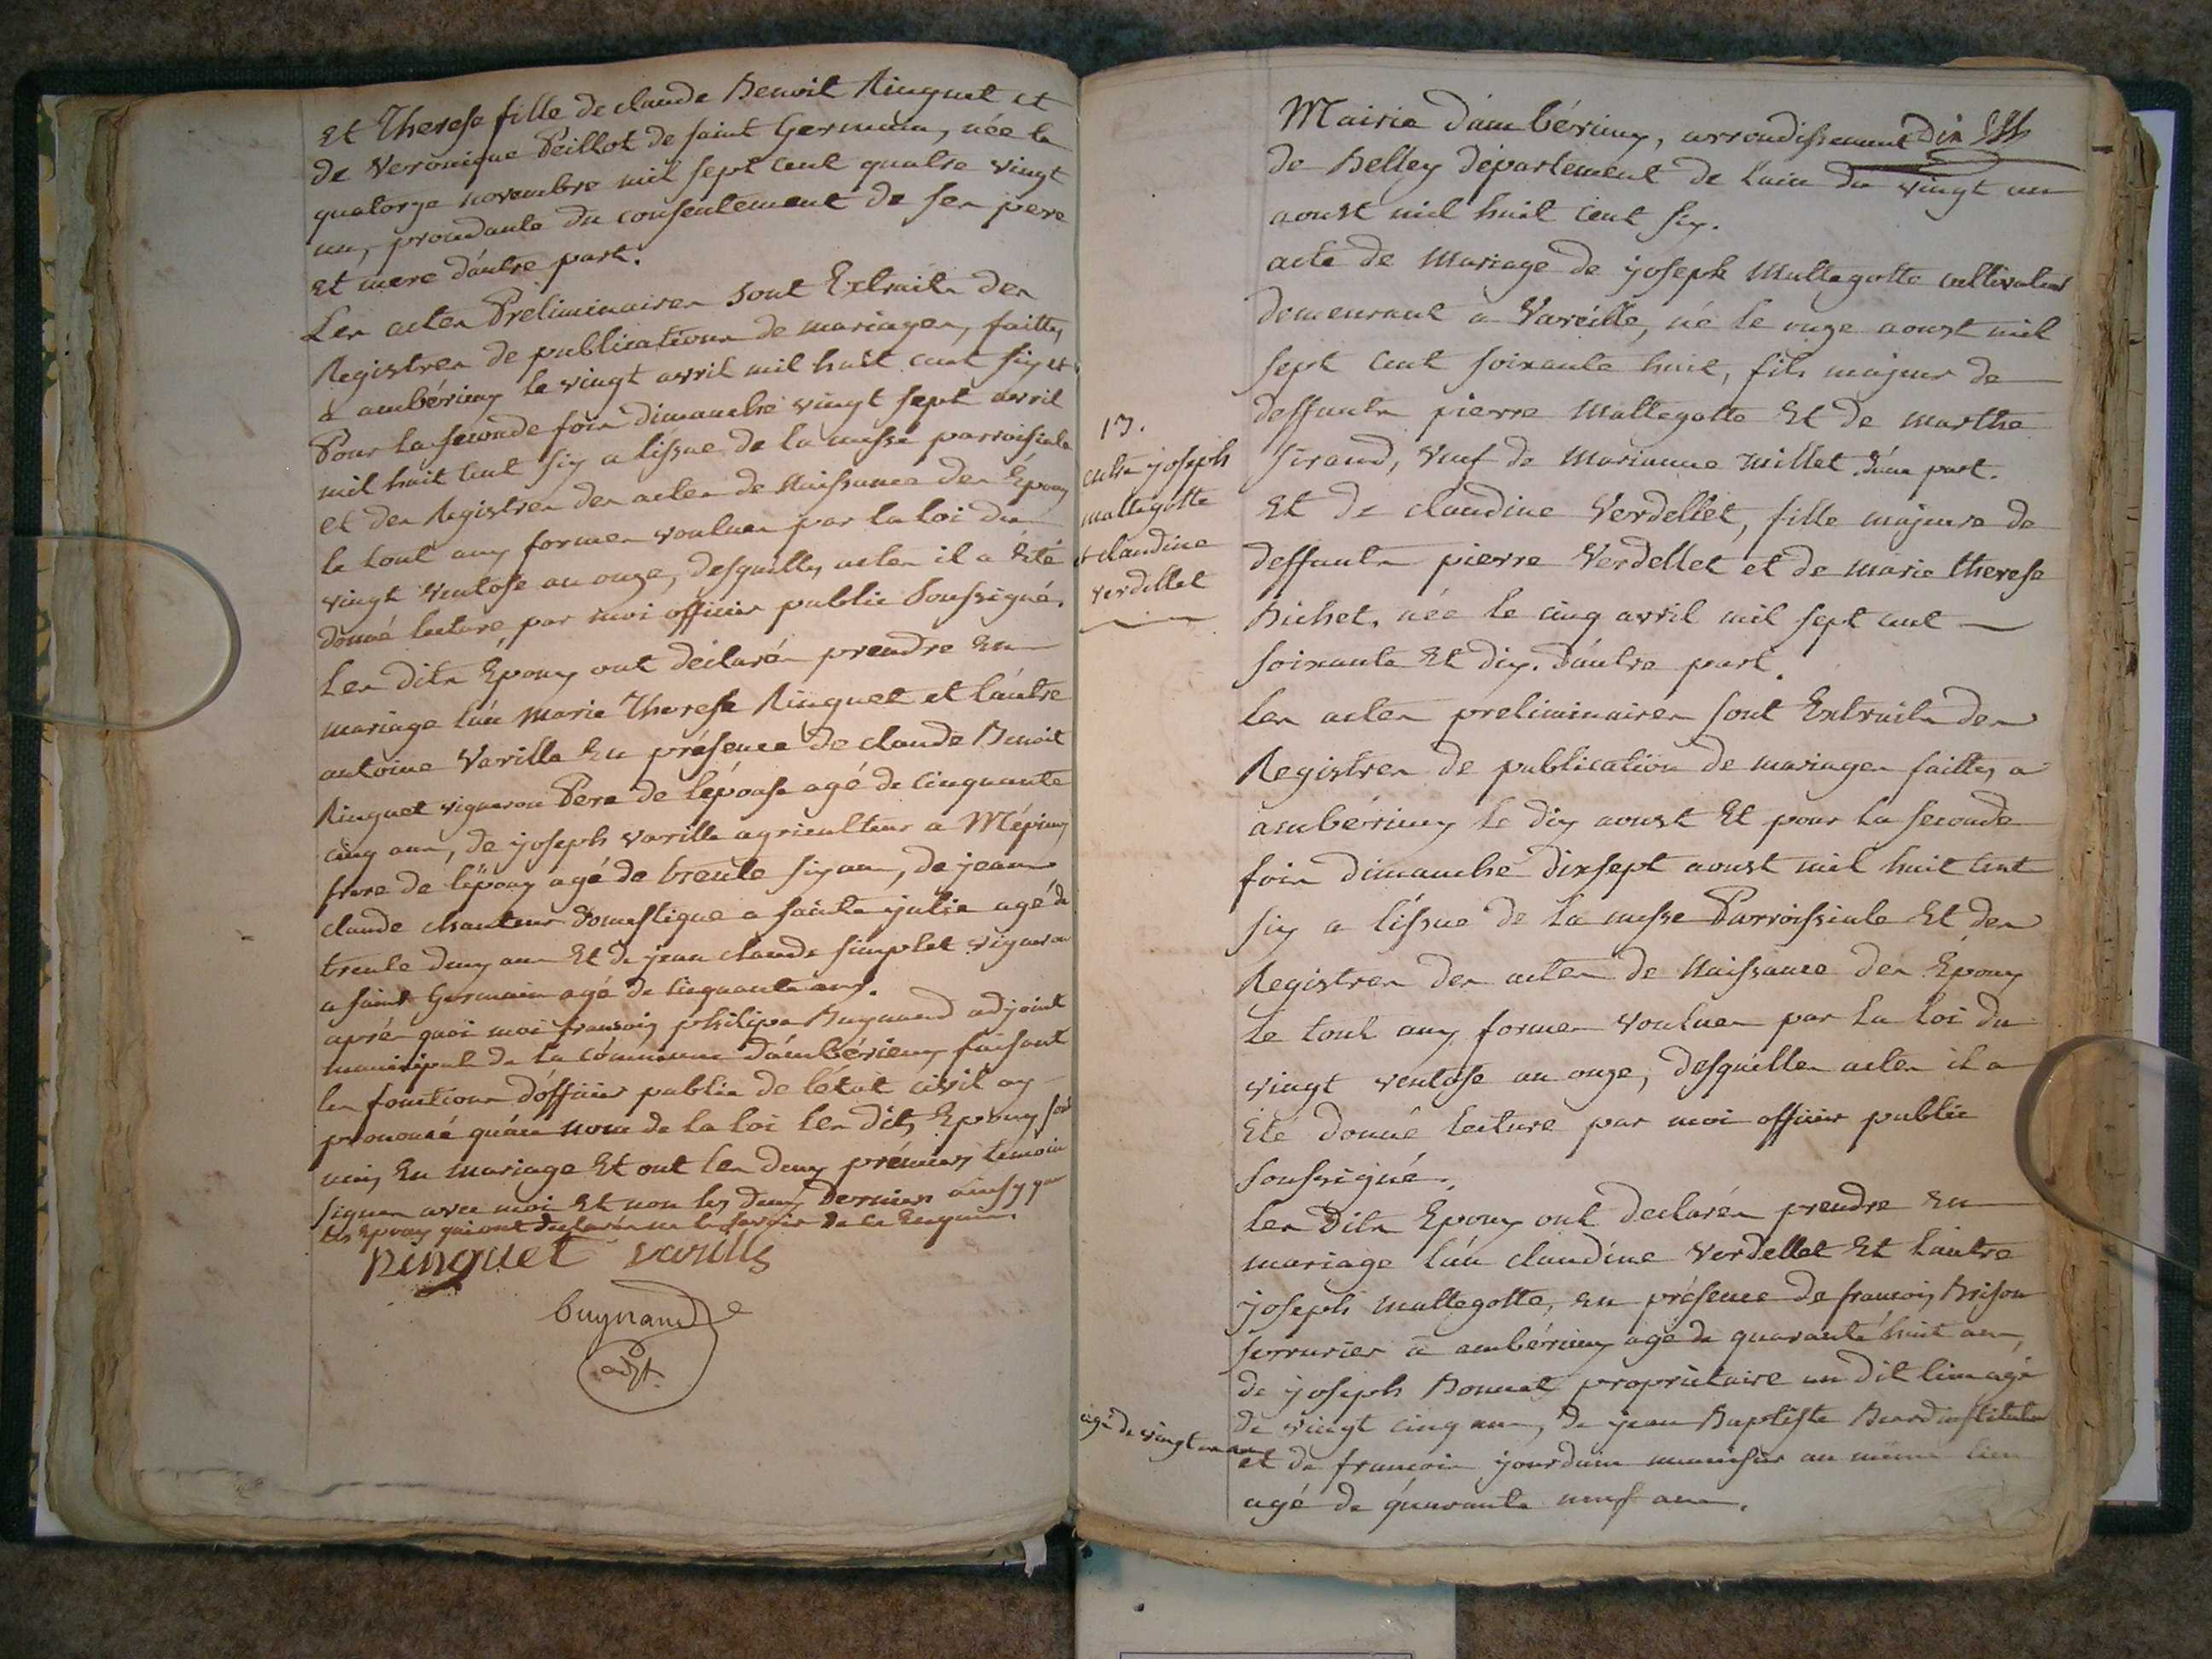 Et Therese fille de claude Benoit Ringuet et
de Veronique Peillot de saint Germain, née le
quatorze novembre mil sept cent quatre vingt
un, procedante du consentement de ses pere
Et mere d'autre part.
Les actes Préliminaires sont Extraits des
Registres de publications de mariages, faittes
a ambérieux le vingt avril mil huit cent six et
Pour la seconde fois dimanche vingt sept avril
mil huit cent six a lissue de la messe parroissiale
et des Registres des actes de Naissance des Époux
le tout aux formes voulues par la loi du
vingt ventose an onze, desquelles actes il a été
donné lecture par moi officier public Soussigné.
Les dits Époux ont déclarés prendre En
mariage l'un Marie Therese Ringuet et l'autre
antoine Varille En présence de claude Benoit
Ringuet vigneron Pere de l'épouse agé de Cinquante
cinq ans, de joseph varille agriculteur a Mépieux
frere de l'époux agé de trente six ans, de jean
claude chanteur domestique a sainte julie agé de
trente deux ans Et de jean claude simplet vigneron
a saint Germain agé de cinquante ans.
après quoi moi francois philipe Buynand adjoint
municipal de la commune d'ambérieux faisant
les fonctions d'officier public de l'état civil ay
prononcé qu'au nom de la loi les dits Epoux sont
unis En mariage Et ont les deux premiers temoins
signés avec moi Et non les deux derniers ainsy que
les Epoux qui ont declarés ne le savoir de ce Enquis.
Ringuet varille
buynand
adjt.
Dix
Mairie d'ambérieux, arrondissement
de Belley département de Lain du vingt un
aoust mil huit cent six.
acte de Mariage de joseph Mattegotte cultivateur
demeurant a Vareille, né le onze aoust mil
sept cent soixante huit, fils majeur de
deffunts pierre Mattegotte Et de marthe
Sirand, veuf de Marianne Millet d'une part.
Et de claudine Verdellet, fille majeure de
deffunts pierre Verdellet et de marie therese
Bichet, née le cinq avril mil sept cent
soixante Et dix. d'autre part.
Les actes preliminaires sont Extraits des
Registres de publication de mariages faittes a
ambérieux le dix aoust Et pour la seconde
fois dimanche dixsept aoust mil huit cent
six a l'issue de la messe Parroissiale Et des
Registres des actes de Naissance des Époux
Le tout aux formes voulues par la loi du
vingt ventose an onze, desquelles actes il a
Eté donné lecture par moi officier public
soussigné.
Les dits Epoux ont declarés prendre En
mariage l'un claudine Verdellet Et l'autre
joseph mattegotte, en présence de francois Brison
serrurier a ambérieux agé de quarante huit ans,
de joseph Bonnet propriétaire au dit lieu agé
de vingt cinq ans, de jean Baptiste instituteur
et de francois jourdain menuisier au même lieu
agé de quarante neuf ans.
13.
entre joseph
mattegotte
et claudine
verdellet
agé de vingt ans